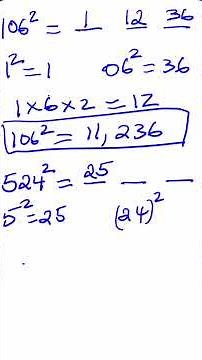 106² = 1 12 36
1² = 1 06² = 36
1 × 6 × 2 = 12
106² = 11,236
524² = 25 _ _
5² = 25 (24)²